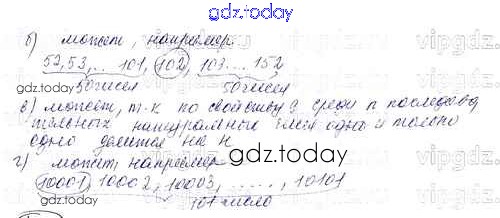 gdz.today
б) может, например.
52, 53, ... 101, 102, 103 .... 152,
gdz.today
50 чисел 50 чисел
в) может, т.к по свойству 2 среди n последова
тельных натуральных чисел одно и только
одно делится на n
gdz.today
г) может например
gdz.today
10001, 10002, 10003, ...., 10101
101 число
vipgdz